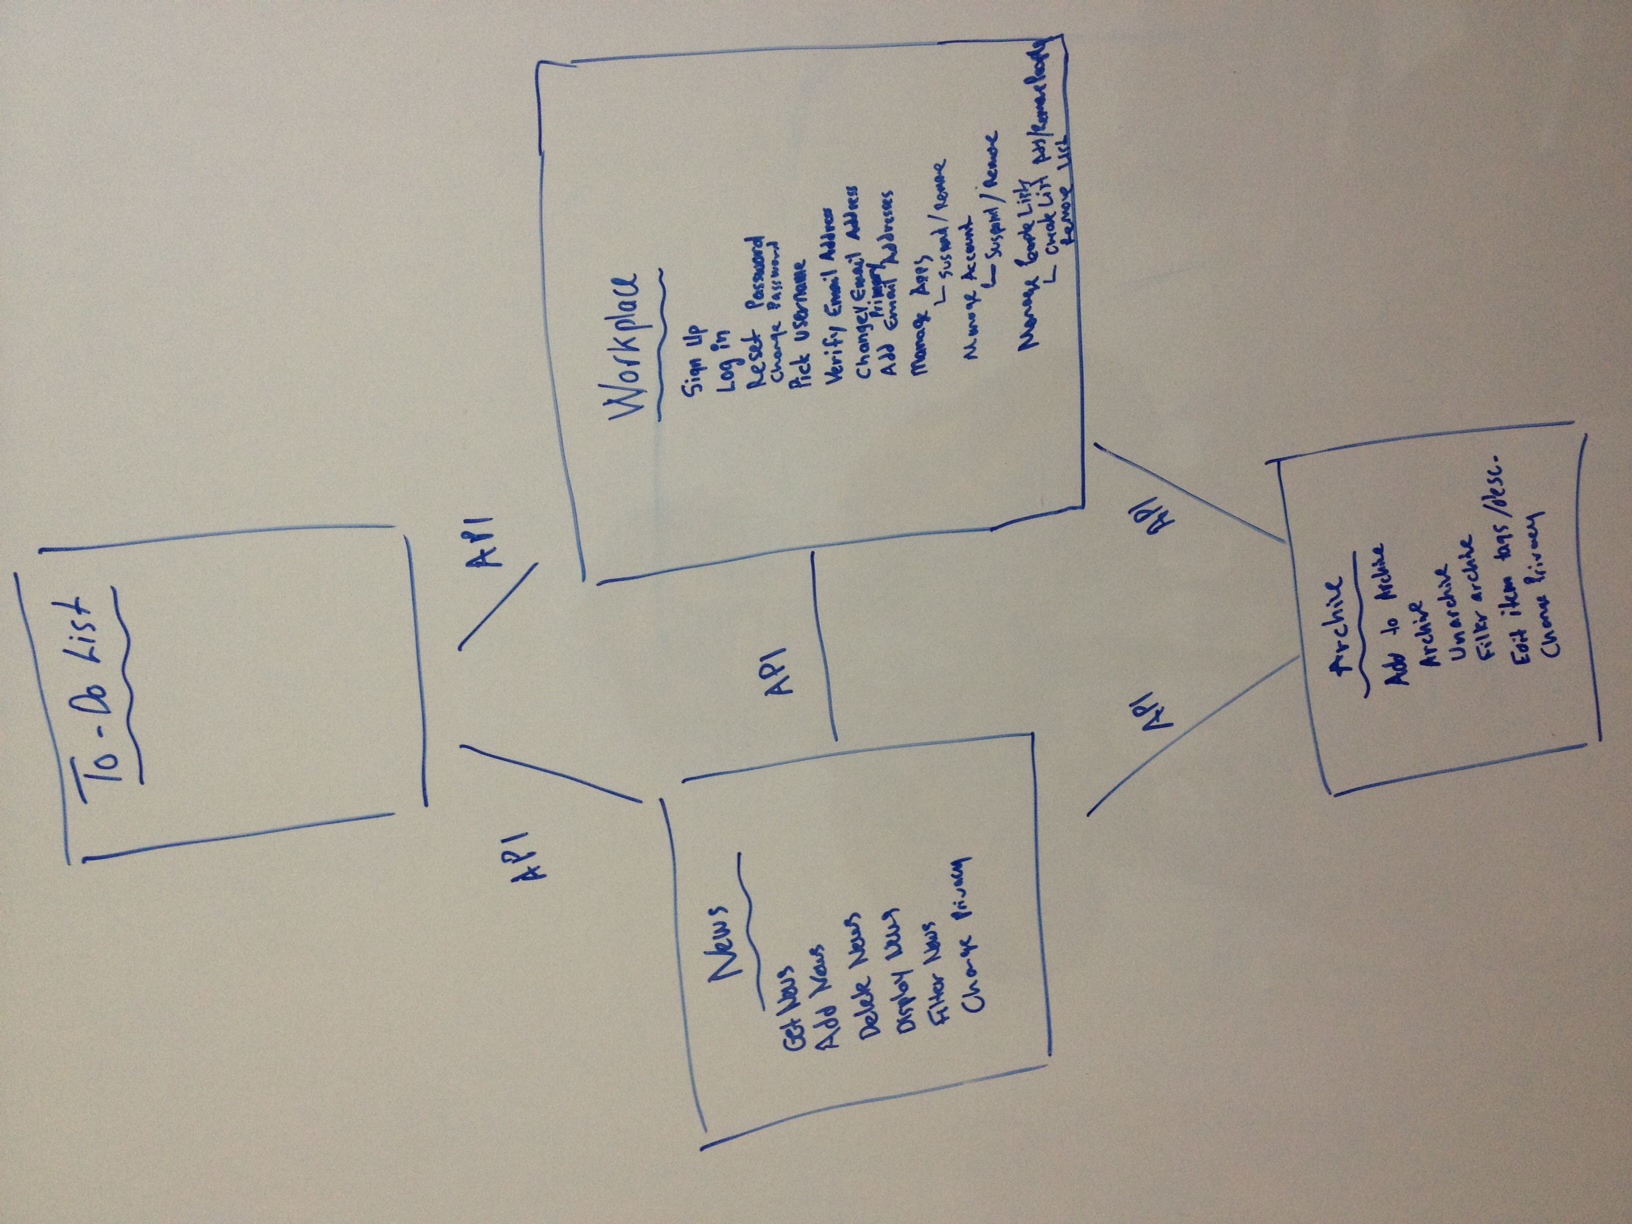 To-Do List
API
API
News
Get News
Add News
Delete News
Display News
Filter News
Change Privacy
API
Workplace
Sign Up
Log in
Reset Password
Change Password
Pick username
Verify Email Address
Change Email Address
Primary
Add Email Addresses
Manage Apps
Suspend / Remove
Manage Account
Suspend / Remove
Manage People Lists
Create List Add/Remove People
Remove List
API
API
Archive
Add to Archive
Archive
Unarchive
Filter archive
Edit item tags/desc.
Change Privacy